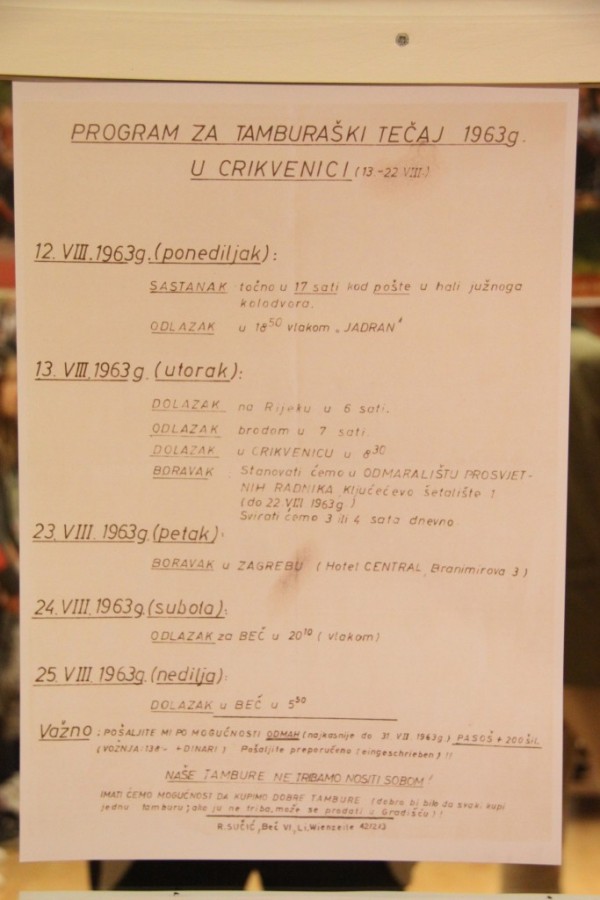 PROGRAM ZA TAMBURAŠKI TEČAJ 1963g.
U CRIKVENICI (13.-22.VIII.)
12. VIII. 1963g. (ponediljak):
SASTANAK točno u 17 sati kod pošte u hali južnoga
kolodvora.
ODLAZAK u 18⁵⁰ vlakom „JADRAN“
13. VIII. 1963g. (utorak):
DOLAZAK na Rijeku u 6 sati.
ODLAZAK brodom u 7 sati.
DOLAZAK u CRIKVENICU u 8³⁰
BORAVAK : Stanovati ćemo u ODMARALIŠTU PROSVJET-
NIH RADNIKA, Ključećevo šetalište 1.
(do 22 VIII 1963g.)
Svirati ćemo 3 ili 4 sata dnevno
23. VIII. 1963g. (petak):
BORAVAK u ZAGREBU (Hotel CENTRAL, Branimirova 3)
24. VIII. 1963g. (subota):
ODLAZAK za BEČ u 20¹⁰ (vlakom)
25. VIII 1963g. (nedilja):
DOLAZAK u BEČ u 5⁵⁰
Važno : POŠALJITE MI PO MOGUĆNOSTI ODMAH (najkasnije do 31 VII 1963g.) PASOŠ + 200 ŠIL.
(VOŽNJA: + DINARI) Pošaljite preporučeno (eingeschrieben) !!
NAŠE TAMBURE NE TRIBAMO NOSITI SOBOM!
IMATI ĆEMO MOGUĆNOSTI DA KUPIMO DOBRE TAMBURE (dobro bi bilo da svaki kupi
jednu tamburu; ako ju ne triba, može se prodati u Gradišću) !
R. SUČIĆ, Beč VI., Li. Wienzeile 42/2/13